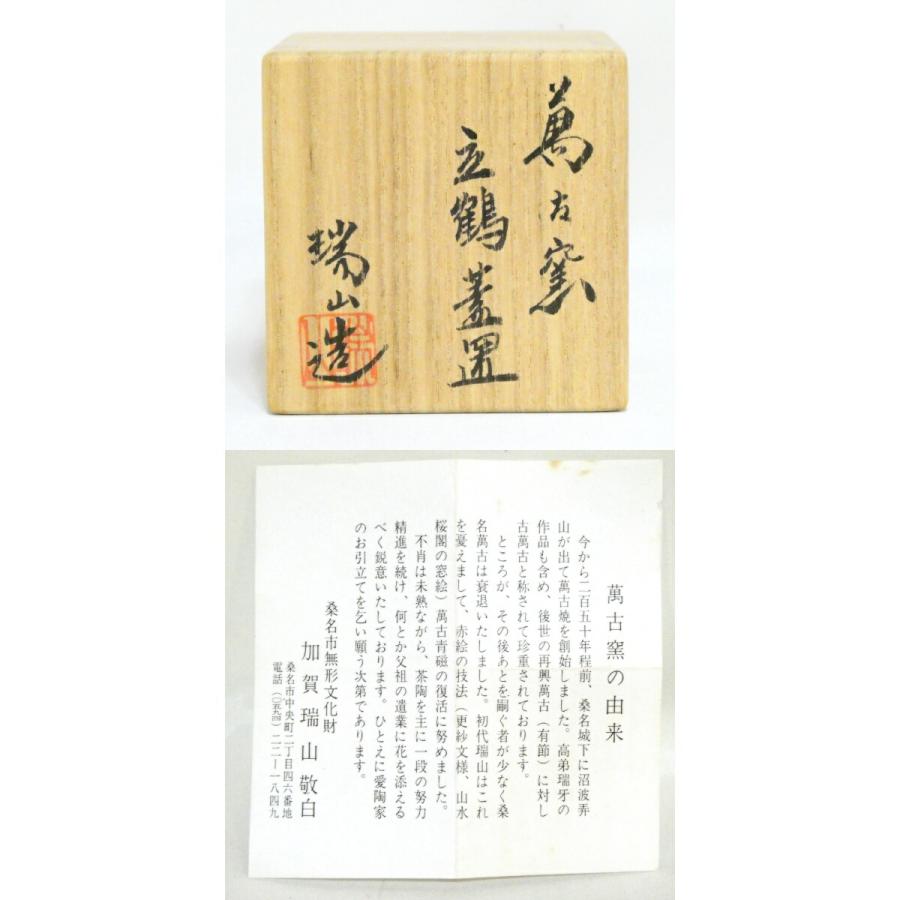 萬古窯
立鶴蓋置
瑞山造
萬古窯の由来
今から二百五十年程前、桑名城下に沼波弄
山が出て萬古焼を創始しました。高弟瑞牙の
作品も含め、後世の再興萬古(有節)に対し
古萬古と称されて珍重されております。
ところが、その後あとを嗣ぐ者が少なく桑
名萬古は衰退いたしました。初代瑞山はこれ
を憂えまして、赤絵の技法(更紗文様、山水
桜閣の窓絵)萬古青磁の復活に努めました。
不肖は未熟ながら、茶陶を主に一段の努力
精進を続け、何とか父祖の遺業に花を添える
べく鋭意いたしております。ひとえに愛陶家
のお引立てを乞い願う次第であります。
桑名市無形文化財
加賀瑞山敬白
桑名市中央町二丁目四六番地
電話(〇五九四)二二ー一八四九